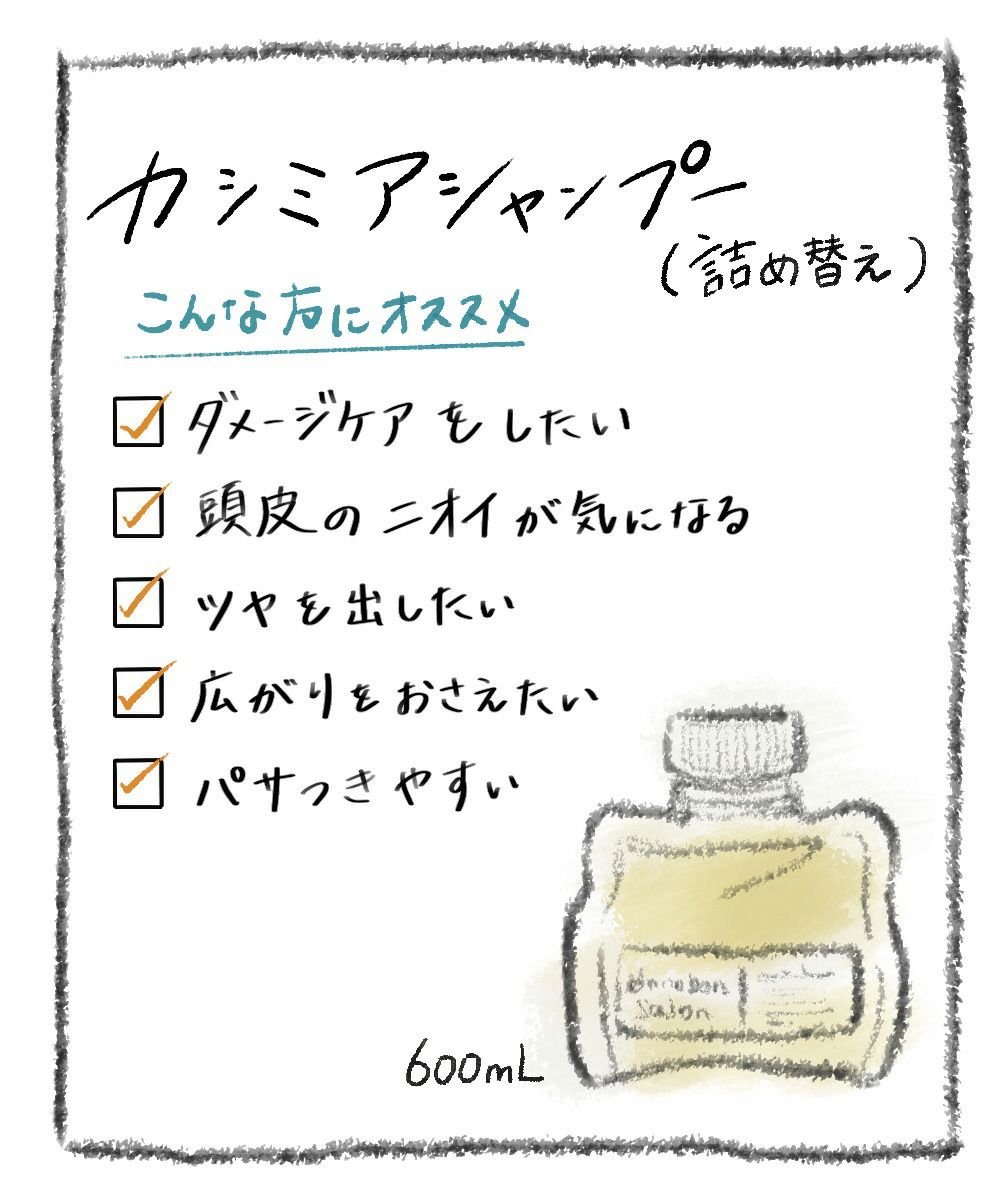 カシミアシャンプー
(詰め替え)
こんな方にオススメ
ダメージケアをしたい
頭皮のニオイが気になる
ツヤを出したい
広がりをおさえたい
パサつきやすい
salon
600mL